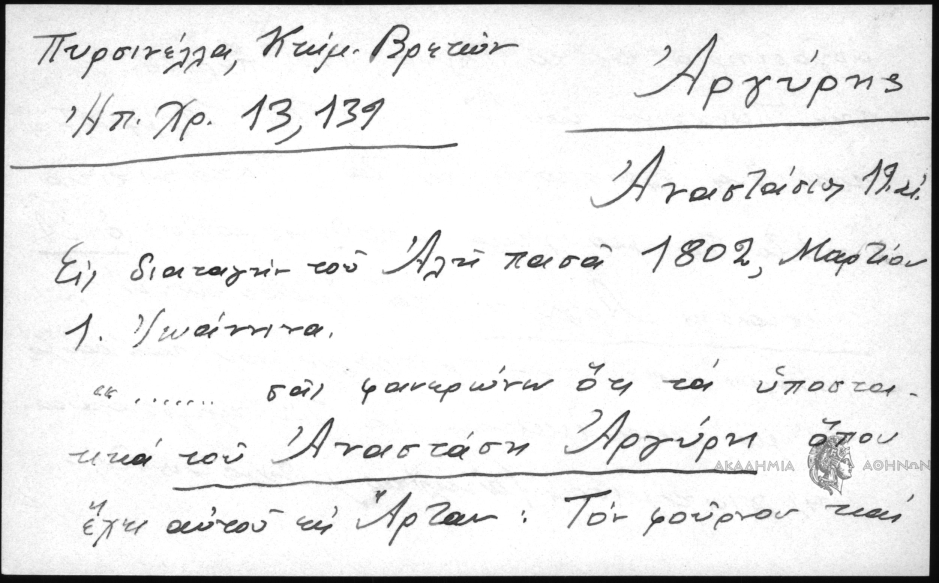 Πυρσινέλλα, Κτημ. Βρετιών
Ἠπ. Χρ. 13, 139
Ἀργύρης
Ἀναστάσιος 19. αἰ.
Εἰς διαταγήν τοῦ Ἀλῆ πασᾶ 1802, Μαρτίου
1. Ἰωάννινα.
“....... σᾶς φανερώνω ὅτι τά ὑποστα-
τικά τοῦ Ἀναστάση Ἀργύρη ὅπου
ἔχει αὐτοῦ εἰς Ἄρταν: Τόν φοῦρνον καί
ΑΚΑΔΗΜΙΑ ΑΘΗΝΩΝ